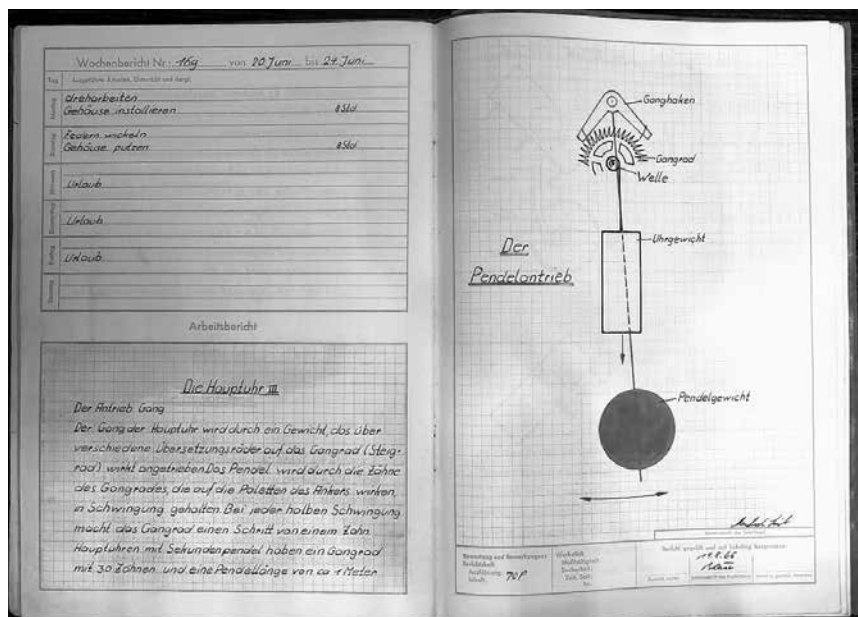 Wochenbericht Nr. 169 von 20 Juni bis 24 Juni
Tag Ausgeführte Arbeiten, Unterricht und dergl.
Montag dreharbeiten
Gehäuse installieren 8 Std
Dienstag Federn wickeln
Gehäuse putzen 8 Std
Mittwoch Urlaub
Donnerstag Urlaub
Freitag Urlaub
Arbeitsbericht
Die Hauptuhr III
Der Antrieb Gang
Der Gang der Hauptuhr wird durch ein Gewicht, das über
verschiedene Übersetzungsräder auf das Gangrad (Steig-
rad) wirkt angetrieben. Das Pendel wird durch die Zähne
des Gangrades, die auf die Paletten des Ankers wirken,
in Schwingung gehalten. Bei jeder halben Schwingung
macht das Gangrad einen Schritt von einem Zahn
Hauptuhren mit Sekundenpendel haben ein Gangrad
mit 30 Zähnen und eine Pendellänge von ca 1 Meter
Ganghaken
Gangrad
Welle
Uhrgewicht
Der
Pendelantrieb
Pendelgewicht
Werkstatt
Ausführung:
Inhalt: